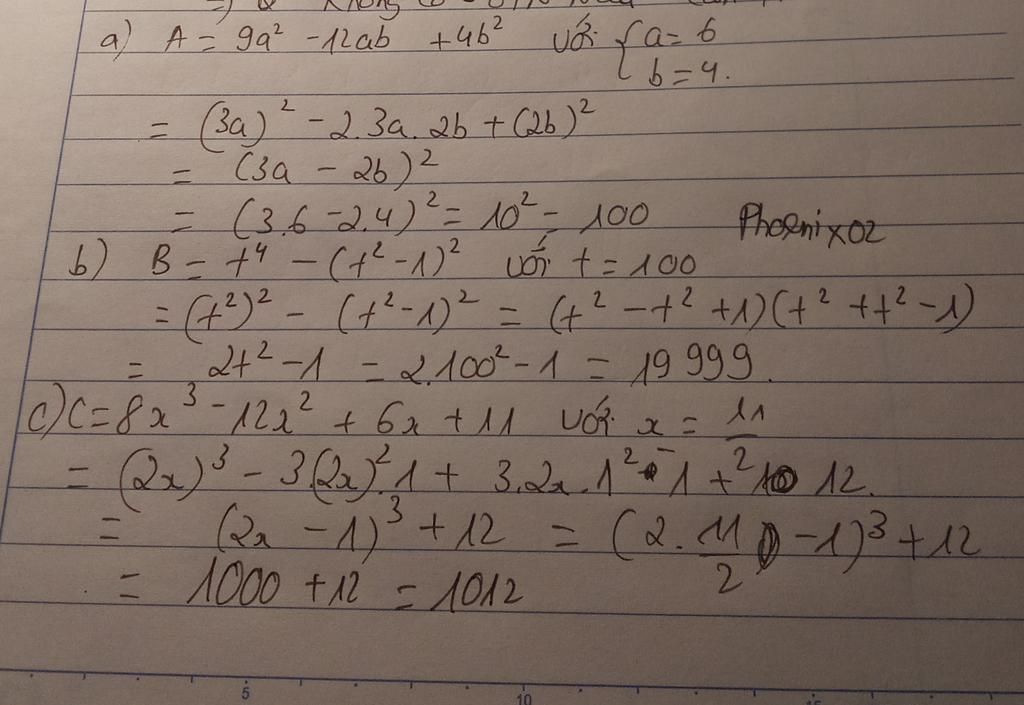 a) A = 9a² - 12ab + 4b² với { a = 6
b = 4.
= (3a)² - 2.3a.2b + (2b)²
= (3a - 2b)²
= (3.6 - 2.4)² = 10² = 100 Phoenix02
b) B = t⁴ - (t² - 1)² với t = 100
= (t²)² - (t² - 1)² = (t² - t² + 1)(t² + t² - 1)
= 2t² - 1 = 2.100² - 1 = 19 999.
c) C = 8x³ - 12x² + 6x + 11 với x = 11/2
= (2x)³ - 3.(2x)².1 + 3.2x.1² - 1 + 12.
= (2x - 1)³ + 12 = (2.11/2 - 1)³ + 12
= 1000 + 12 = 1012
5 10